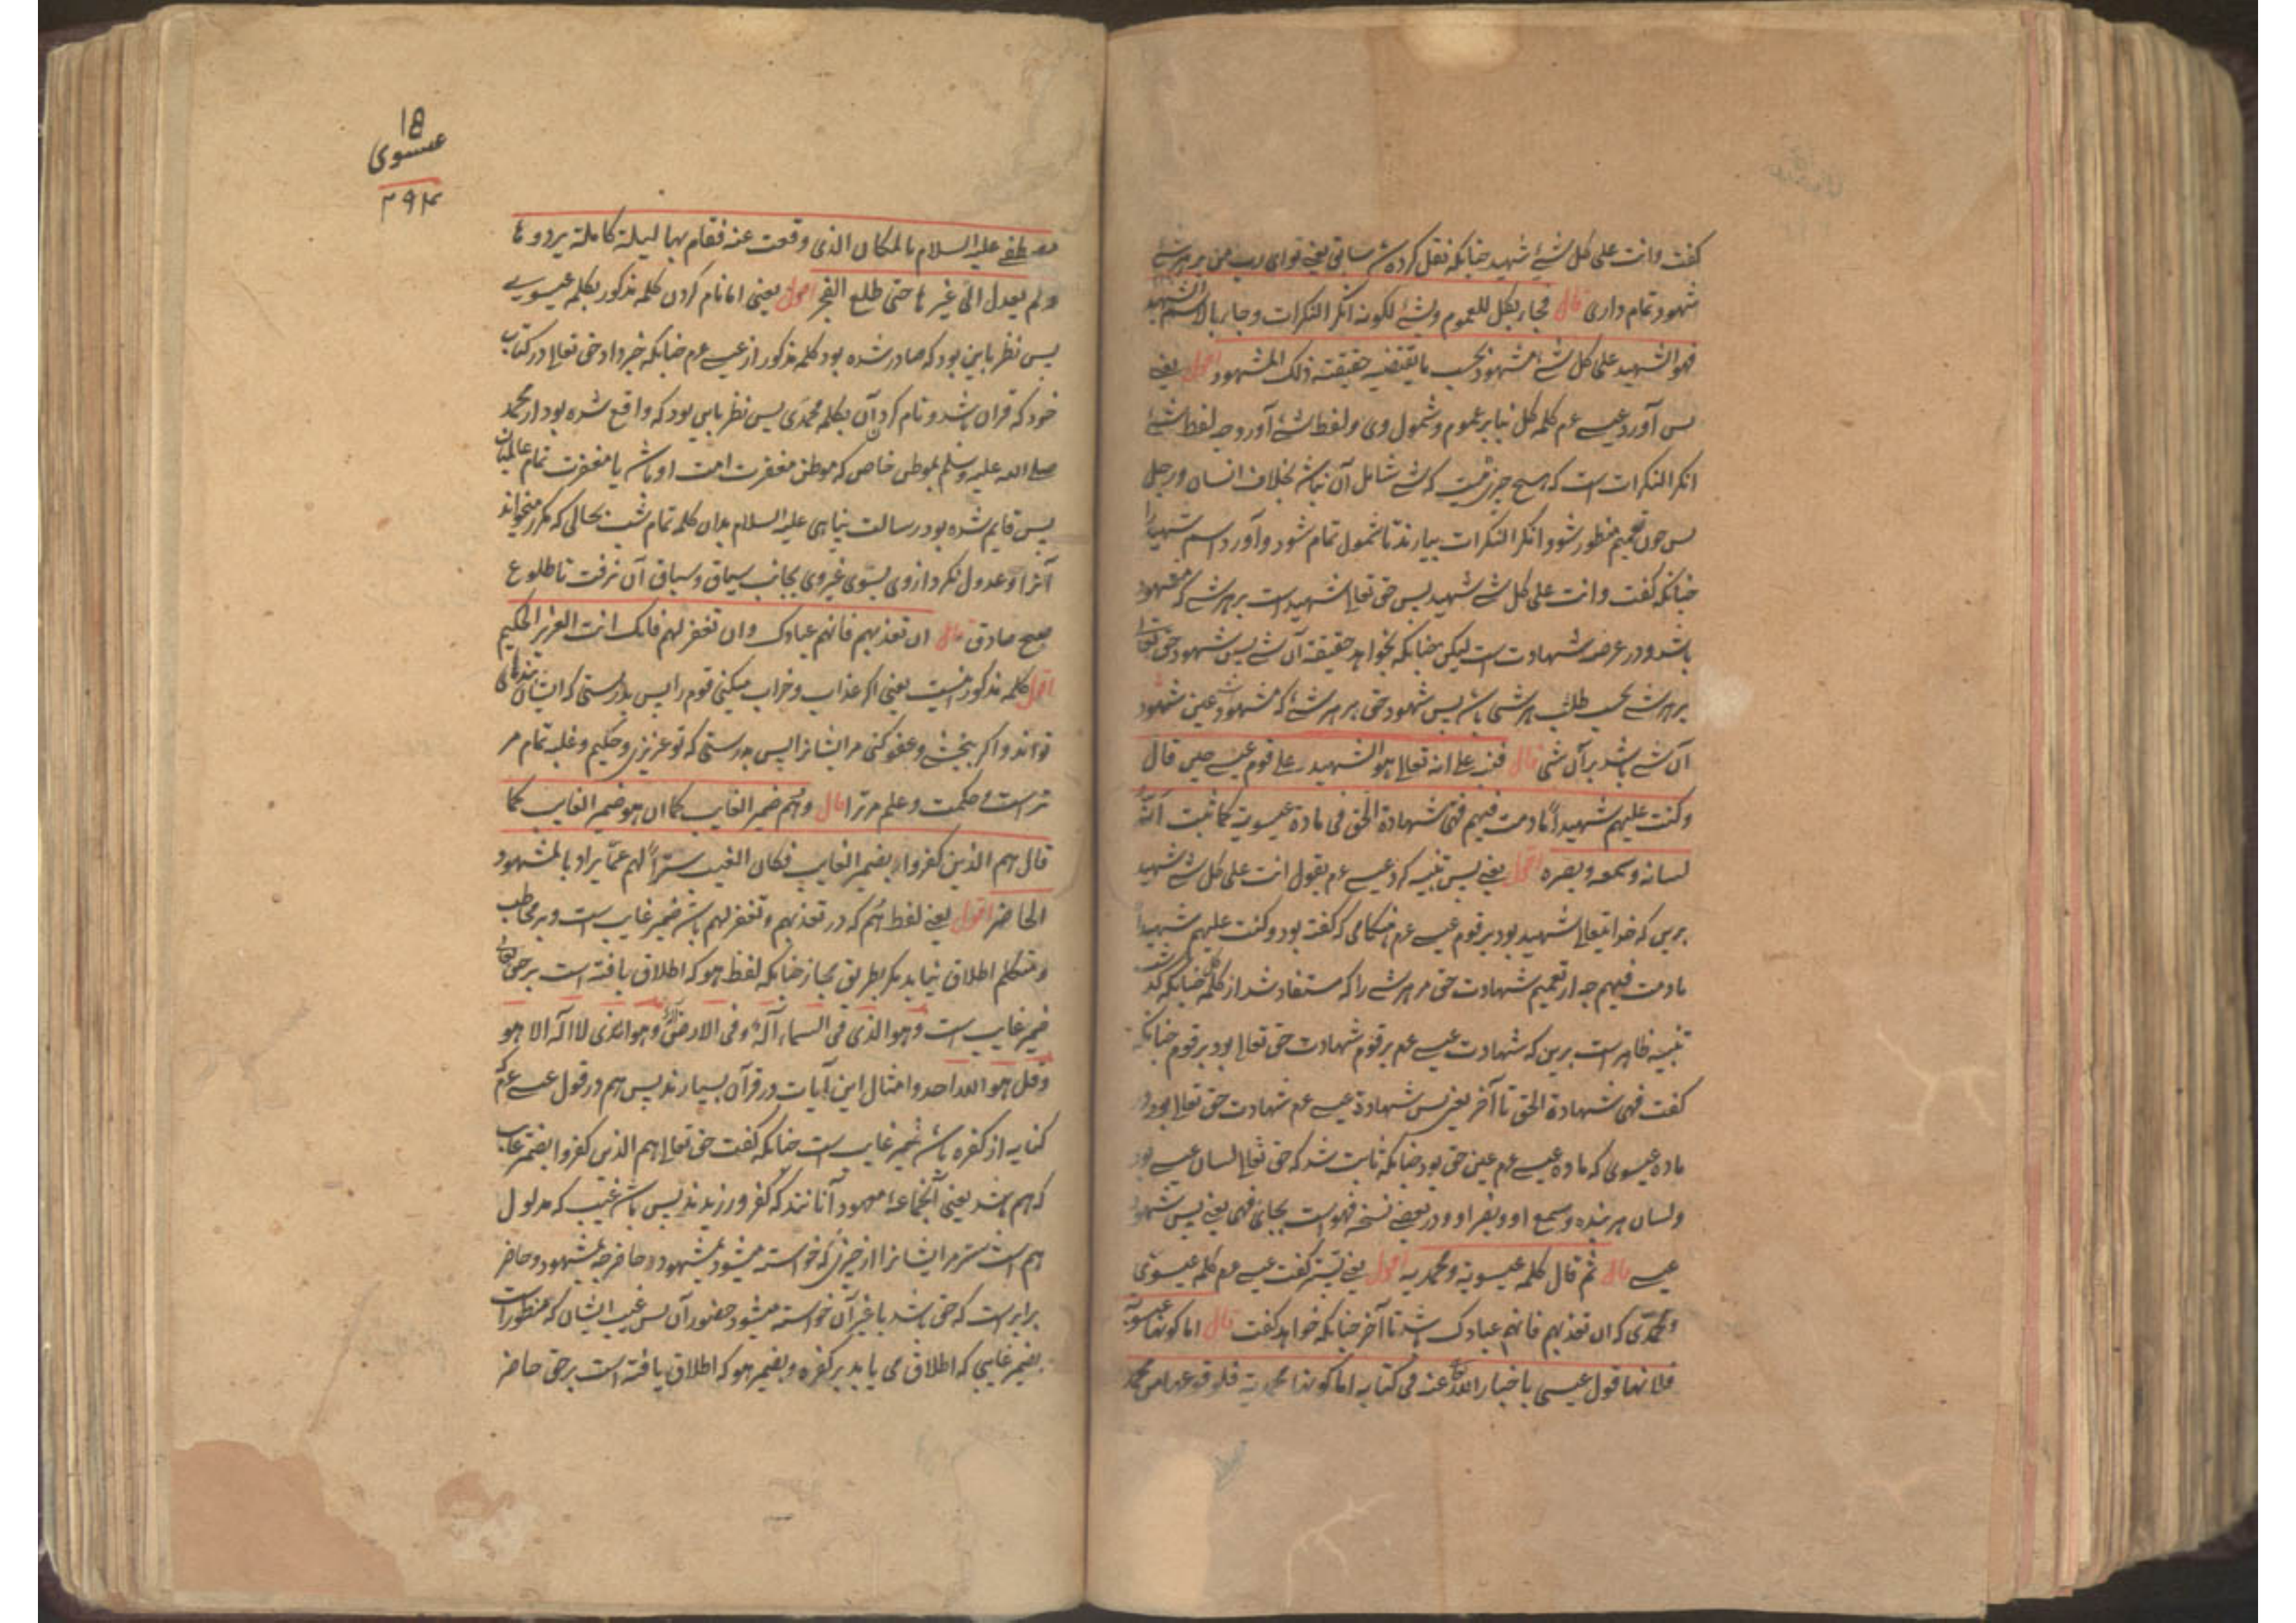 گفت وانت علی کل شئ شهید چنانکه نقل کرده شد سابق یعنی تو ای رب من بر هر شئ
شهود تمام داری قال فجاء بکل للعموم وبشئ لکونه انکر النکرات وجاء بالاسم الشهید
فهو الشهید علی کل شئ مشهود بحسب ما یقتضیه حقیقته ذلک المشهود اقول یعنی
پس آورد عیسی عم کلمه کل بنابر عموم وشمول وی ولفظ شئ آورد چه لفظ شئ
انکر النکرات است که هیچ چیزی نیست که شئ شامل آن نباشد بخلاف انسان ورجل
پس چون تعمیم منظور شود انکر النکرات بیارند تا شمول تمام شود وآورد اسم شهید را
چنانکه گفت وانت علی کل شئ شهید پس حق تعالی شهید است بر هر شئ که مشهود
باشد ودر عرصه شهادت است لیکن چنانکه بخواهد حقیقة آن شئ پس شهود حق تعالی
بر هر شئ بحسب طلب هر شئ باشد پس شهود حق بر هر شئ که مشهود است عین شهود
آن شئ باشد بر آن شئ قال فنبه علی انه تعالی هو الشهید علی قوم عیسی حین قال
وکنت علیهم شهیداً ما دمت فیهم فهی شهادة الحق فی مادة عیسویة کما ثبت انه
لسانه وسمعه وبصره اقول یعنی پس تنبیه کرد عیسی عم بقول انت علی کل شئ شهید
برین که خدا تعالی شهید بود بر قوم عیسی عم هنگامی که گفته بود وکنت علیهم شهیداً
ما دمت فیهم چه از تعمیم شهادت حق مر هر شئ را که مستفاد شد از کلمه کل چنانکه گذشت
تنبیه ظاهر است برین که شهادت عیسی عم بر قوم شهادت حق تعالی بود بر قوم چنانکه
گفت فهی شهادة الحق تا آخر یعنی پس شهادة عیسی عم شهادت حق تعالی بود در
ماده عیسوی که ماده عیسی عم عین حق بود چنانکه ثابت شد که حق تعالی لسان عیسی بود
ولسان هر بنده وسمع او وبصر او ودر بعضی نسخه فهو است بجای فهی یعنی پس شهود
عیسی قال ثم قال کلمه عیسویة ومحمدیه اقول یعنی پستر گفت عیسی عم کلمه عیسوی
ومحمدی که ان تعذبهم فانهم عبادک باشد تا آخر چنانکه خواهد گفت قال اما کونها عیسویة
فلانها قول عیسی باخبار الله تعالی عنه فی کتابه اما کونها محمدیة فلوقوعها من محمد
18
عیسوی
۳۹۲
مصطفی علیه السلام بالمکان الذی وقعت عنه فقام بها لیلة کاملة یرددها
ولم یعدل الی غیرها حتی طلع الفجر اقول یعنی اما نام کردن کلمه مذکور بکلمه عیسویه
پس نظر باین بود که صادر شده بود کلمه مذکور از عیسی عم چنانکه خبر داد حق تعالی در کتاب
خود که قران باشد ونام کرد آن بکلمه محمدی پس نظر باین بود که واقع شده بود از محمد
صلی الله علیه وسلم بموطن خاص که موطن مغفرت امت او باشد یا مغفرت تمام عالمیان
پس قایم شده بود رسالت پناهی علیه السلام بدان کلمه تمام شب بحالی که مکرر میخواند
آنرا وعدول نکرد از وی بسوی غیر وی بجانب سیاق وسباق آن نرفت تا طلوع
صبح صادق قال ان تعذبهم فانهم عبادک وان تغفر لهم فانک انت العزیز الحکیم
اقول کلمه مذکور اینست یعنی اکر عذاب وخراب میکنی قوم را پس بدرستی که ایشان بندهای
تو اند واکر ببخشی وعفو کنی مر ایشانرا پس بدرستی که تو عزیزی وحکیم وغلبه تمام مر
تراست وحکمت وعلم مر ترا قال وهم ضمیر الغایب کما ان هو ضمیر الغایب کما
قال هم الذین کفروا بضمیر الغایب فکان الغیب ستراً لهم عما یراد بالمشهود
الحاضر اقول یعنی لفظ هم که در تعذبهم وتغفر لهم باشد ضمیر غایب است وبر مخاطب
ومتکلم اطلاق نیابد مکر بطریق مجاز چنانکه لفظ هو که اطلاق یافته است بر حق تعالی
ضمیر غایب است وهو الذی فی السماء آله وفی الارض آله وهو الذی لا اله الا هو
وقل هو الله احد وامثال این آیات در قرآن بسیارند پس هم در قول عیسی عم که
کنایه از کفره باشد ضمیر غایب است چنانکه گفت حق تعالی هم الذین کفروا بضمیر غایب
که هم باشد یعنی آنجماعه معهود آنانند که کفر ورزیدند پس باشد غیب که مدلول
هم است ستر مر ایشانرا از چیزی که خواسته میشود بمشهود حاضر چه مشهود وحاضر
برابر است که حق باشد یا غیر آن خواسته میشود حضور آن پس غیب ایشان که منظور است
بضمیر غایبی که اطلاق می یابد بر کفره وبضمیر هو که اطلاق یافته است بر حق حاضر